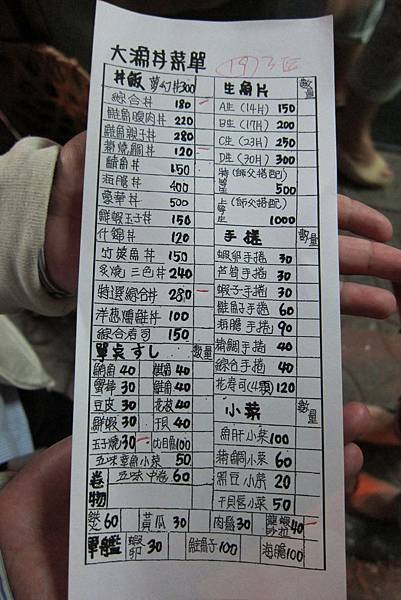 大漁丼菜單
丼飯 夢幻丼300
綜合丼 180
鮭魚腹肉丼 220
鮭魚親子丼 280
蔥燒鯛丼 120
鯖魚丼 150
海膽丼 400
豪華丼 500
鮮蝦玉子丼 150
什錦丼 120
竹筴魚丼 150
炙燒三色丼 240
特選綜合丼 280
洋蔥燻鮭丼 100
綜合壽司 150
生魚片 數量
A生 (14片) 150
B生 (17片) 200
C生 (23片) 250
D生 (30片) 300
特生 (師父搭配) 500
上生 (師父搭配) 1000
手捲 數量
蝦卵手捲 30
蘆筍手捲 30
蝦子手捲 30
鮭魚子手捲 60
海膽手捲 90
鮪鯛手捲 40
綜合手捲 40
花壽司(4顆) 120
單点すし 數量
鮪魚 40 旗魚 40
蟹棒 30 鮭魚 40
豆皮 30 花枝 40
鮮蝦 30 干貝 40
玉子燒 30 比目魚 100
五味章魚小菜 50
五味中卷 60
小菜 數量
魚肝小菜 100
鮪鯛小菜 60
黑豆小菜 20
干貝唇小菜 50
卷物
60 黃瓜 30 肉鬆 30 龍蝦沙拉 40
軍艦 蝦卵 30 鮭魚子 100 海膽 100